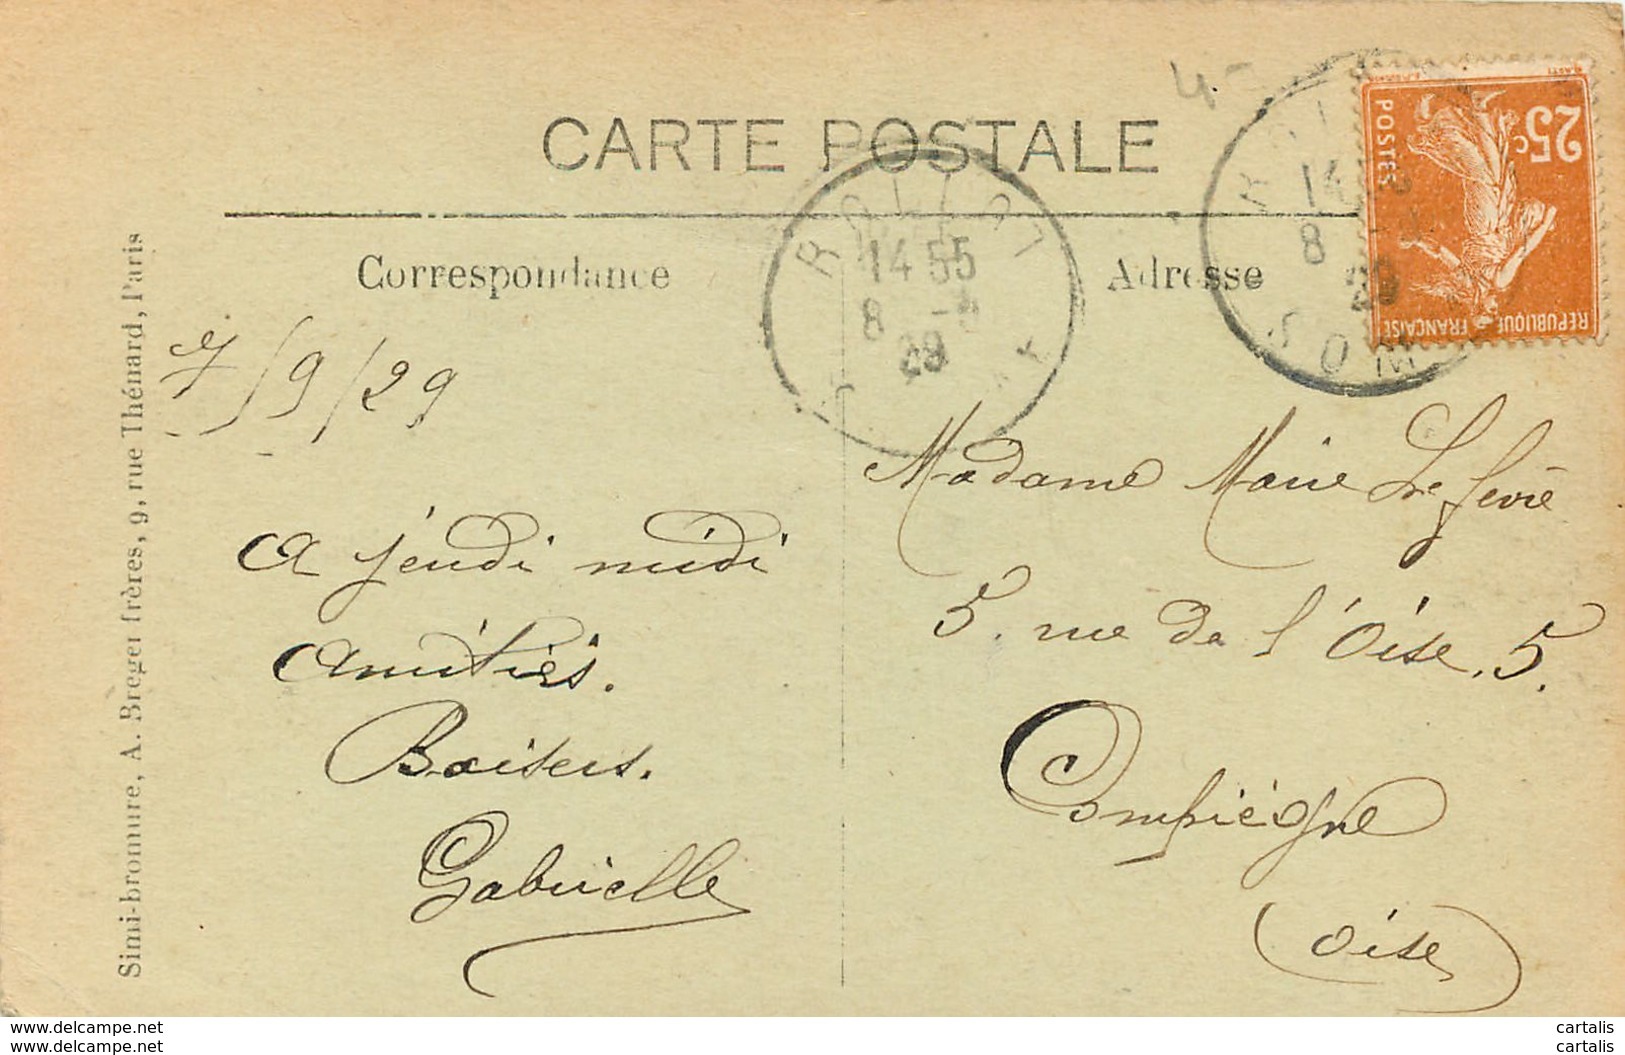 4-
CARTE POSTALE
Correspondance
Adresse
14 55
8 -9
29
14
8
29
25c
POSTES
REPUBLIQUE FRANÇAISE
7/9/29
A jeudi midi
Amitiés.
Baisers.
Gabrielle
Madame Marie Lefèvre
5. rue de l'Oise. 5.
Compiègne
(Oise)
Simi-bromure, A. Breger frères, 9, rue Thénard, Paris
www.delcampe.net
www.delcampe.net
cartalis
cartalis